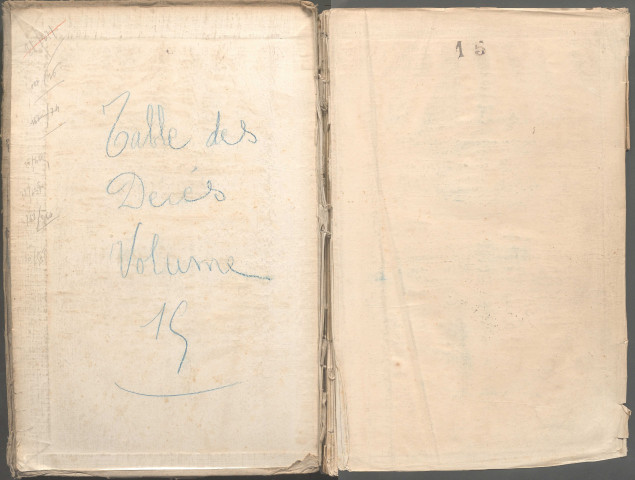 Table des
Decés
Volume
15
15